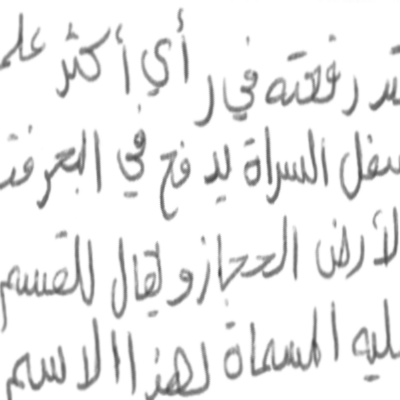 رفعته في رأي أكثر علم
سفل السراة يد فع في البحر
لأرض الحجاز و يقال للقسم
ليه المسماة لهذا الاسم